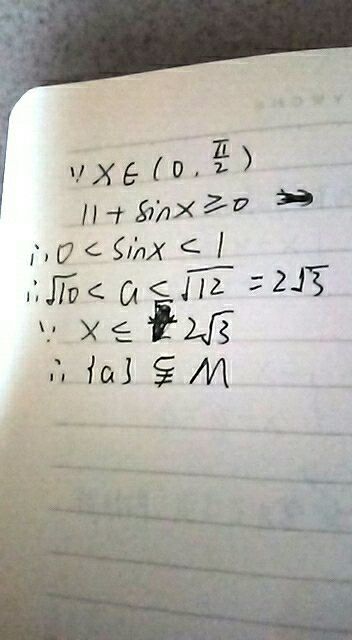 ∵ X∈(0,π/2)
11+sinx≥0
∴ 0<sinx<1
∴ √10<a<√12=2√3
∵ x≤2√3
∴ {a}⫋M